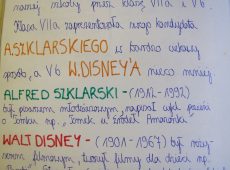 naszej szkoły przez klasę VIIa i Vb
Klasa VIIa zaprezentowała swego kandydata
A.SZKLARSKIEGO w bardzo ciekawy
sposób, a Vb W.DISNEY'A nieco mniej
ALFRED SZKLARSKI - (1912-1992)
był pisarzem młodzieżowym, napisał cykl powieści
o Tomku np. "Tomek u źródeł Amazonki"
WALT DISNEY - (1901-1967) był
filmowym, tworzył filmy dla dzieci np.